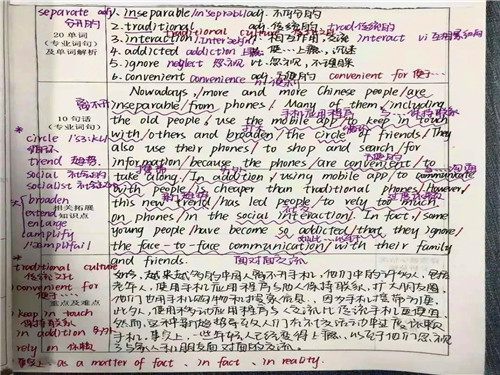 separate adj. 分开的
1. inseparable /ɪn'seprəbl/ adj. 不可分的
2. traditional adj. 传统的, trad 传统的
traditional culture
20单词
(专业词句)
及单词解析
3. interaction /ɪntər'ækʃn/ 相互作用, 交流 interact vi
4. addicted addiction 上瘾 使…上瘾, 沉迷
5. ignore neglect 忽视 vt. 忽视, 不理睬
6. convenient convenience adj. 方便的 convenient for 便于…
Nowadays, /more and more Chinese people /are
离不开
inseparable /from phones/. Many of them, /including
手机应用程序 与…保持联系
the old people, use the mobile app /to keep in touch
10句话
(专业词句)
with /others and broaden /the circle of friends. /They
* circle /'sɜ:kl/
also use their phones/ to shop and search for
trend 趋势
information /because the phones /are convenient /to
social
take along. In addition, using mobile app /to communicate
socialist
with people /is cheaper than traditional phones. However,
* broaden
this new trend /has led people /to rely too much
extend
相关拓展
知识点
on phones /in the social interaction/. In fact, /some
enlarge
young people /have become so addicted/ that they ignore
amplify
/'æmplɪfaɪ/
the face-to-face communication/ with their family
* traditional culture
传统文化
and friends. 面对面交流
convenient for
便于…
重点及难点
keep in touch
保持联系
in addition 另外
rely on 依赖
如今, 越来越多的中国人离不开手机, 他们中的许多人, 包括
老年人, 使用手机应用程序与他人保持联系, 扩大朋友圈。
他们也用手机购物和搜索信息, 因为手机携带方便。
此外, 使用移动应用程序与人交流比传统手机更便宜
然而, 这种新趋势导致人们在社交活动中过度依赖
手机。事实上, 一些年轻人已经变得上瘾, 以至于他们忽视
了与家人和朋友面对面的交流。
事实上: as a matter of fact 、in fact 、in reality.